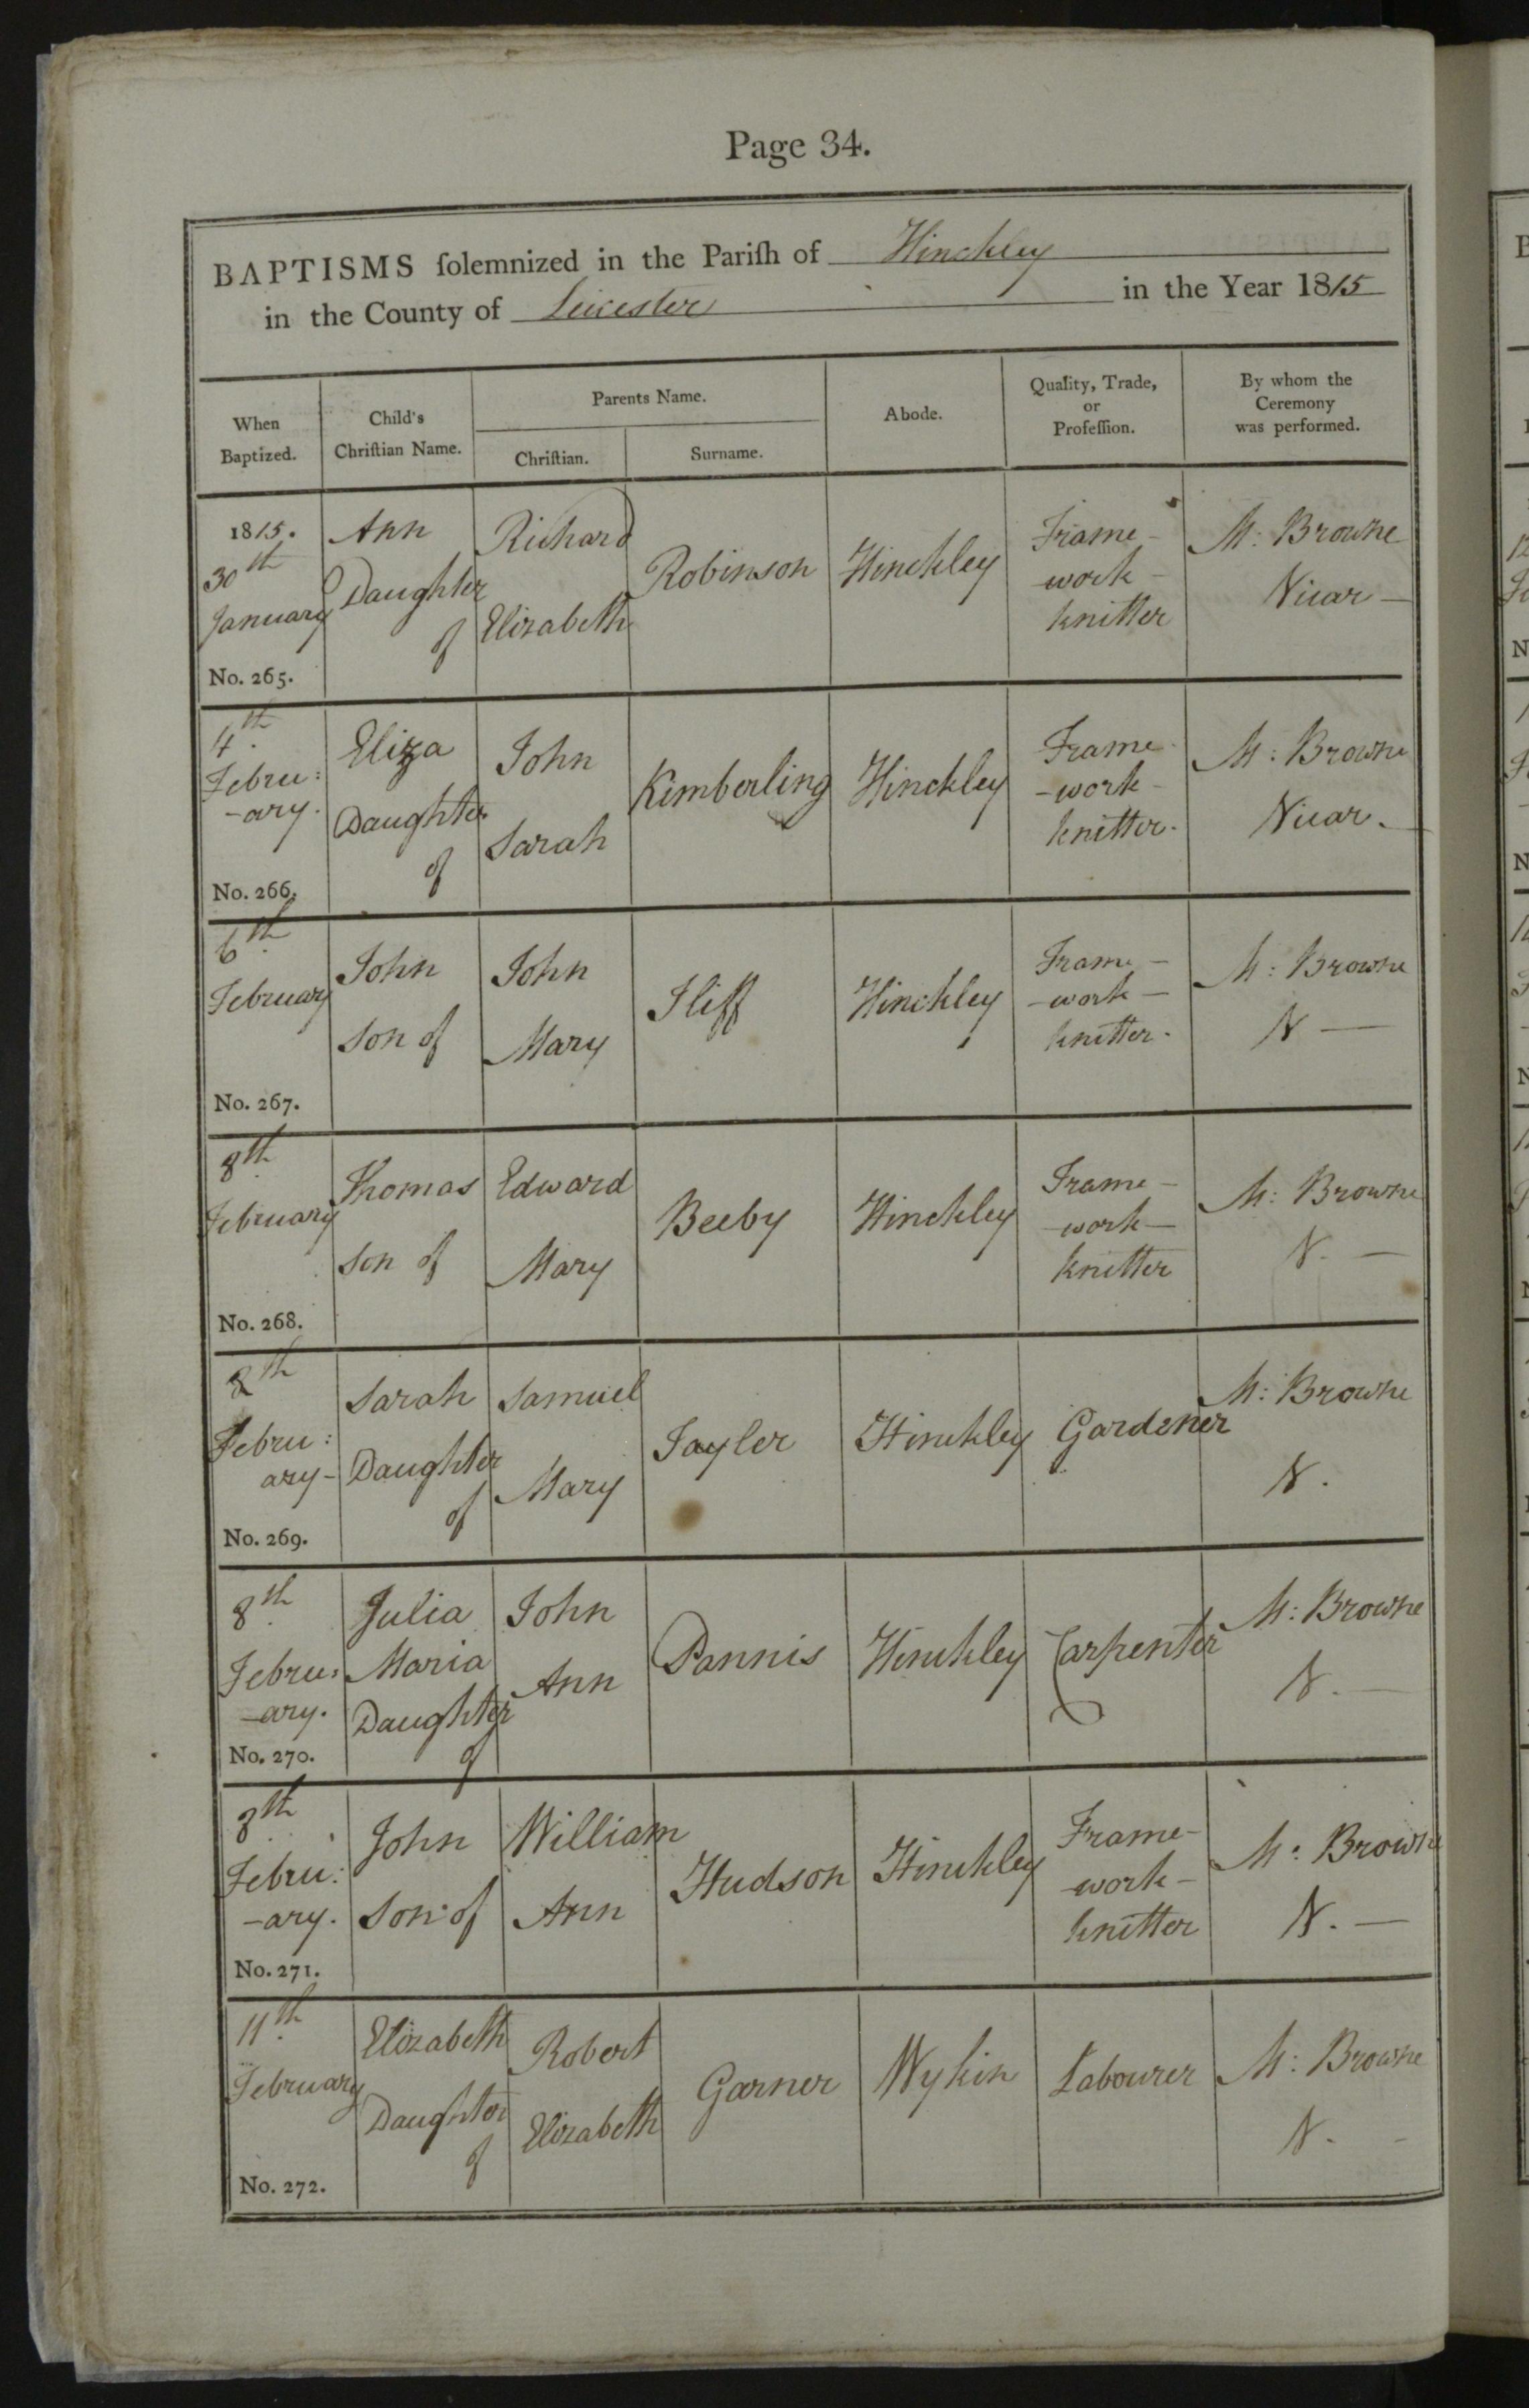 Page 34.
BAPTISMS ſolemnized in the Pariſh of Hinckley
in the County of Leicester in the Year 1815
When Baptized.
Child's Chriſtian Name.
Parents Name.
Chriſtian.
Surname.
Abode.
Quality, Trade, or Profeſſion.
By whom the Ceremony was performed.
1815.
30th
January
No. 265.
Ann
Daughter
of
Richard
Elizabeth
Robinson
Hinckley
Frame-
work-
knitter
M: Browne
Vicar —
4th
Febru:
-ary.
No. 266.
Eliza
Daughter
of
John
Sarah
Kimberling
Hinckley
Frame-
-work-
knitter.
M: Browne
Vicar.
6th
February
No. 267.
John
son of
John
Mary
Iliff
Hinckley
Frame-
-work-
knitter.
M: Browne
V —
8th
February
No. 268.
Thomas
son of
Edward
Mary
Beeby
Hinckley
Frame-
-work-
knitter
M: Browne
V. —
8th
Febru:
ary-
No. 269.
Sarah
Daughter
of
Samuel
Mary
Jayler
Hinckley
Gardener
M: Browne
V.
8th
Febru:
-ary.
No. 270.
Julia
Maria
Daughter
of
John
Ann
Dannis
Hinckley
Carpenter
M: Browne
V. —
8th
Febru:
-ary.
No. 271.
John
son of
William
Ann
Hudson
Hinckley
Frame-
-work-
knitter
M: Browne
V. —
11th
February
No. 272.
Elizabeth
Daughter
of
Robert
Elizabeth
Garner
Wykin
Labourer
M: Browne
V. -